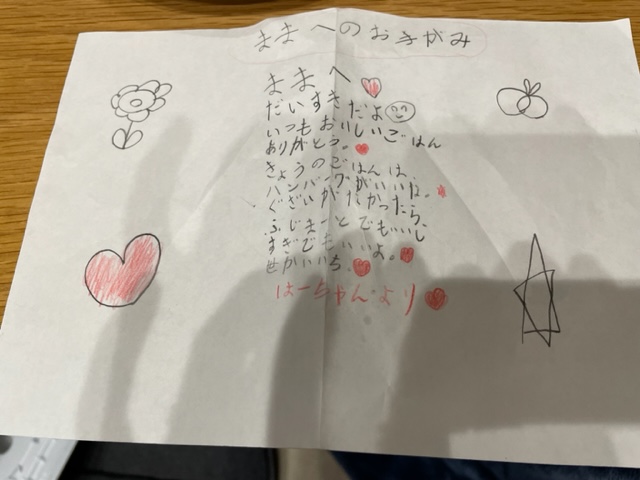 ままへのお手がみ
ままへ
だいすきだよ
いつもおいしいごはん
ありがとう。
きょうのごはんは、
ハンバーグがいいな。
ぐざいがたかったら、
ふじまーとでもいいし
すぎでもいいよ。
せかいいち。
はーちゃんより